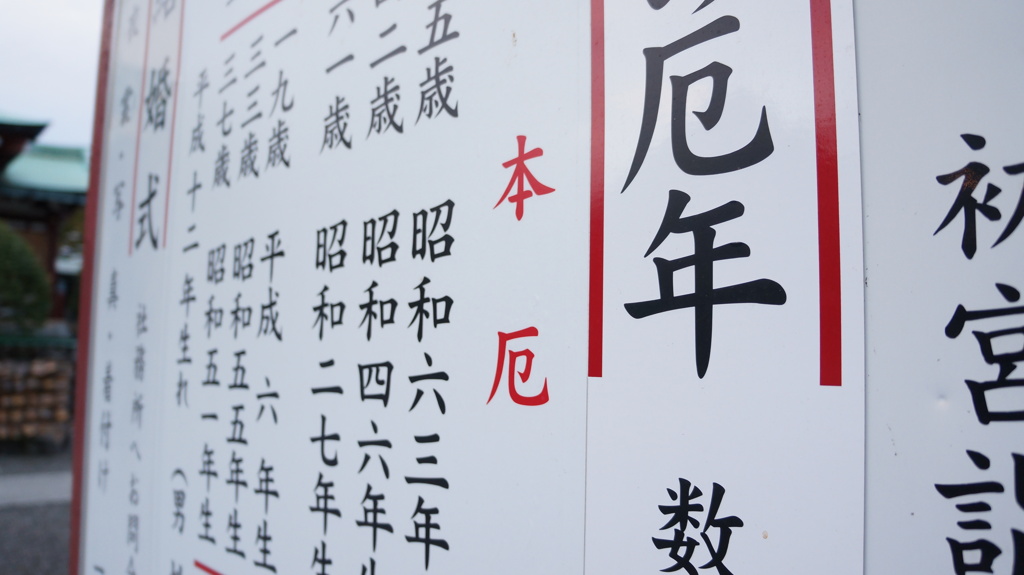 初宮詣
厄年
数
本厄
五歳 昭和六三年
二歳 昭和四六年生
六一歳 昭和二七年生
一九歳 平成六年生
三三歳 昭和五五年生
三七歳 昭和五一年生
平成十二年生れ(男
結婚式
社務所へお問合